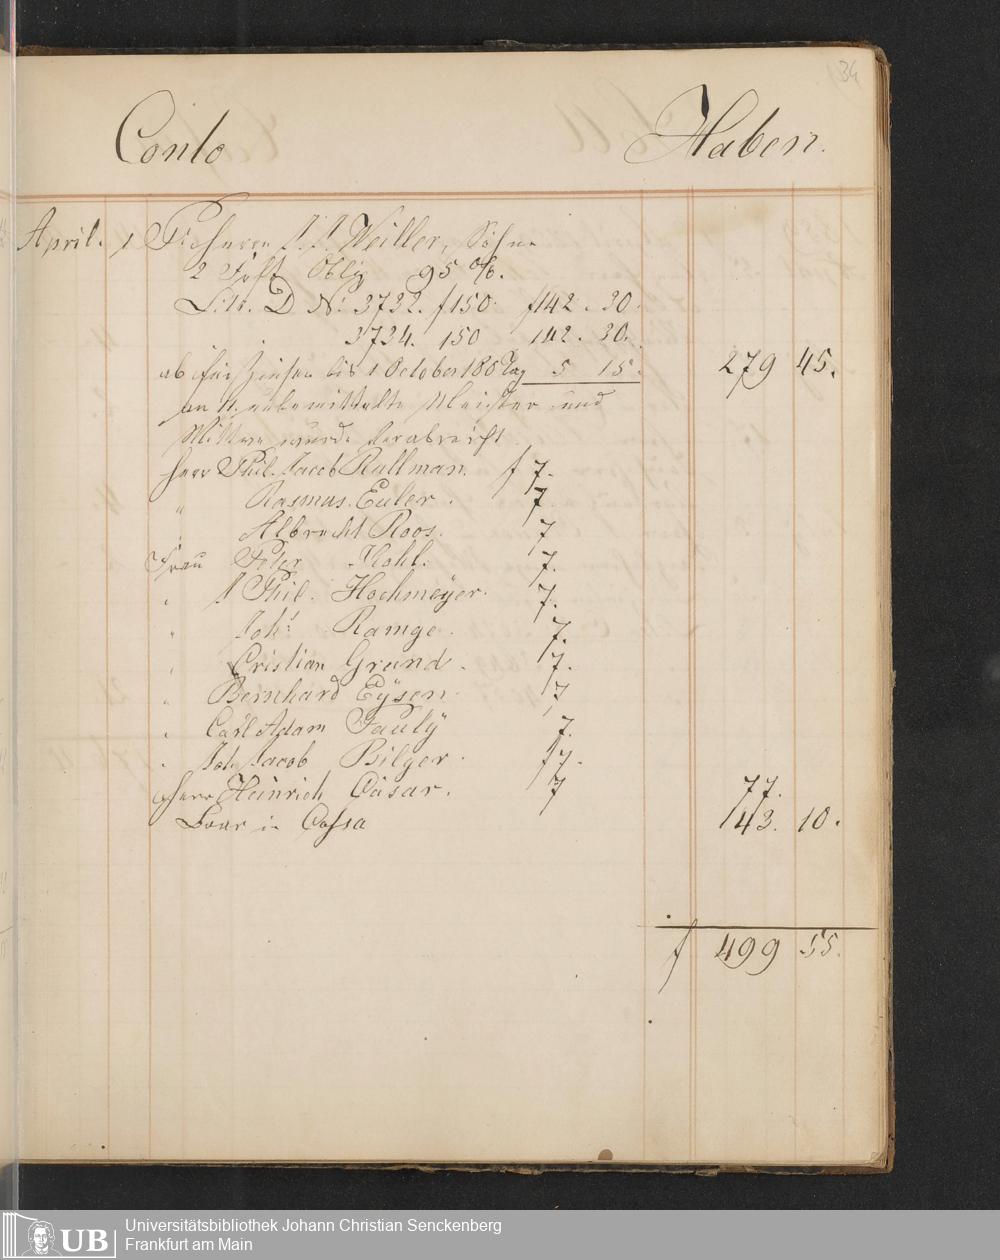 34
Conto Haben.
April. 1 Pr Herren J. J. Weiller, Söhne
2 Oblig 95 %.
Litr. D No. 3732. f 150 f 142. 30.
3734. 150 142. 30.
ab für Zinsen bis 1 October 5 15. 279 45.
an 11 unbemittelte Meister und
Wittwen wurde verabreicht
Herr Phil. Jacob Rullman. f 7.
" Rasmus Euler. 7.
" Albrecht Roos. 7
Frau Peter Kohl. 7.
" J Phil. Hochmeÿer. 7.
" Joh. Ramge. 7.
" Cristian Grund. 7.
" Bernhard Eÿsen 7
" Carl Adam Paulÿ 7.
" Joh Jacob Bilger. 7.
Herr Heinrich Cäsar. 7 77.
Baar in Cassa 143. 10.
f 499 55.
UB Universitätsbibliothek Johann Christian Senckenberg
Frankfurt am Main